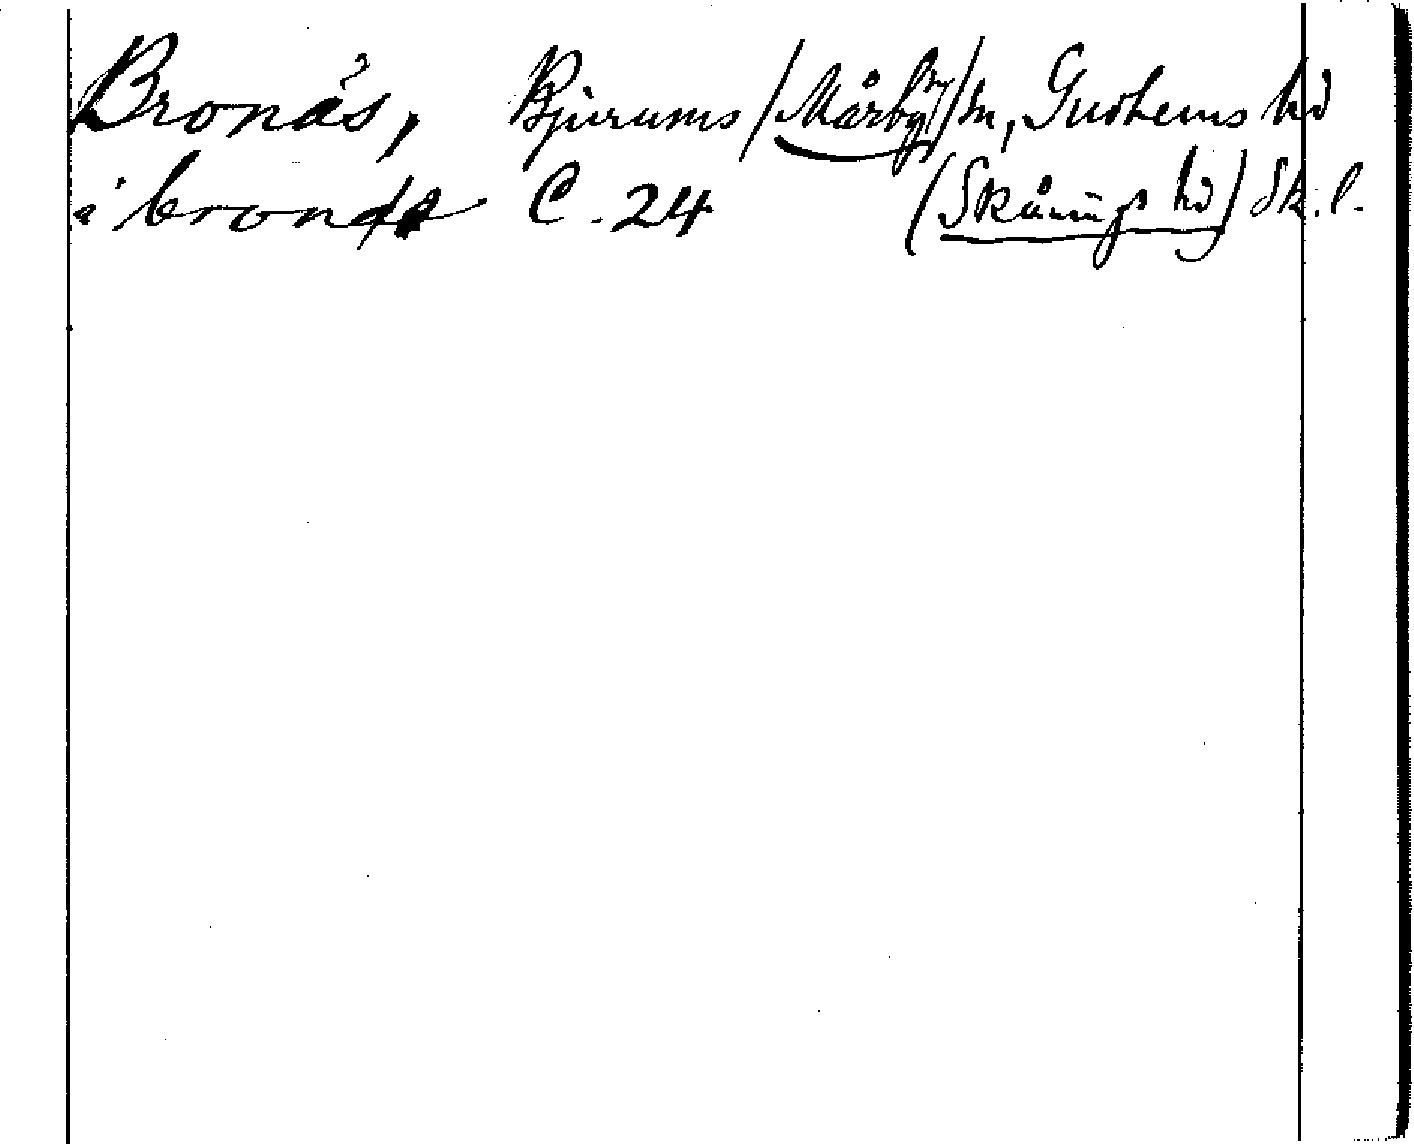 Bronäs, Bjurums /Mårby/ sn, Gudhems hd
i bronäs C. 24 (Skånings hd) Sk. l.